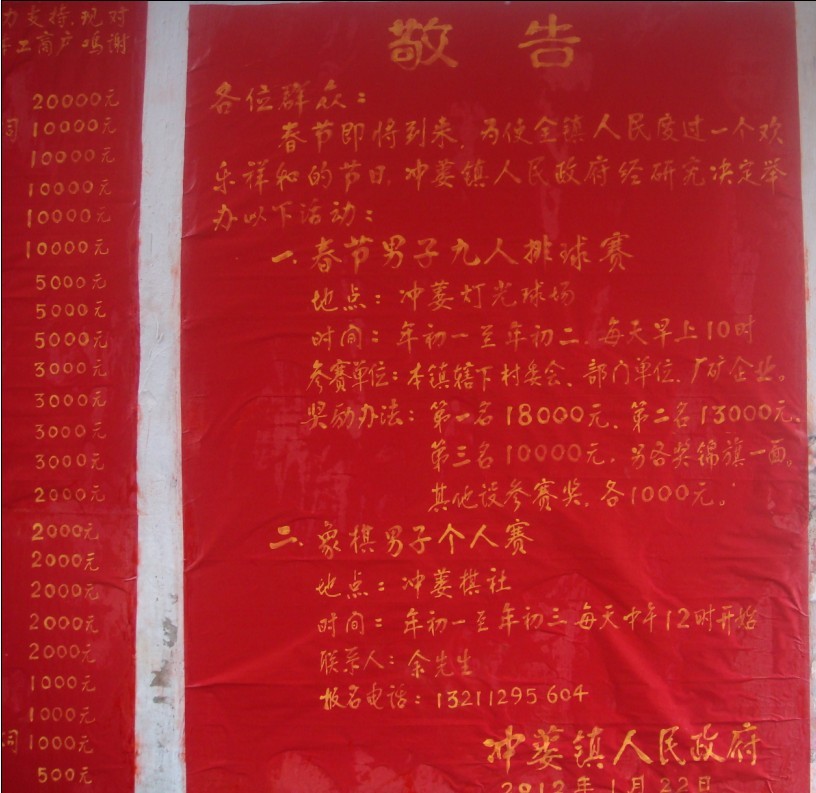 力支持,现对
工商户鸣谢
20000元
司 10000元
10000元
10000元
10000元
10000元
5000元
5000元
5000元
3000元
3000元
3000元
3000元
2000元
2000元
2000元
2000元
2000元
2000元
1000元
1000元
司 1000元
500元
敬告
各位群众：
春节即将到来，为使全镇人民度过一个欢
乐祥和的节日，冲蒌镇人民政府经研究决定举
办以下活动：
一、春节男子九人排球赛
地点：冲蒌灯光球场
时间：年初一至年初二，每天早上10时
参赛单位：本镇辖下村委会、部门单位、厂矿企业。
奖励办法：第一名18000元、第二名13000元、
第三名10000元，另各奖锦旗一面。
其他设参赛奖，各1000元。
二、象棋男子个人赛
地点：冲蒌棋社
时间：年初一至年初三每天中午12时开始
联系人：余先生
报名电话：13211295604
冲蒌镇人民政府
2012年1月22日